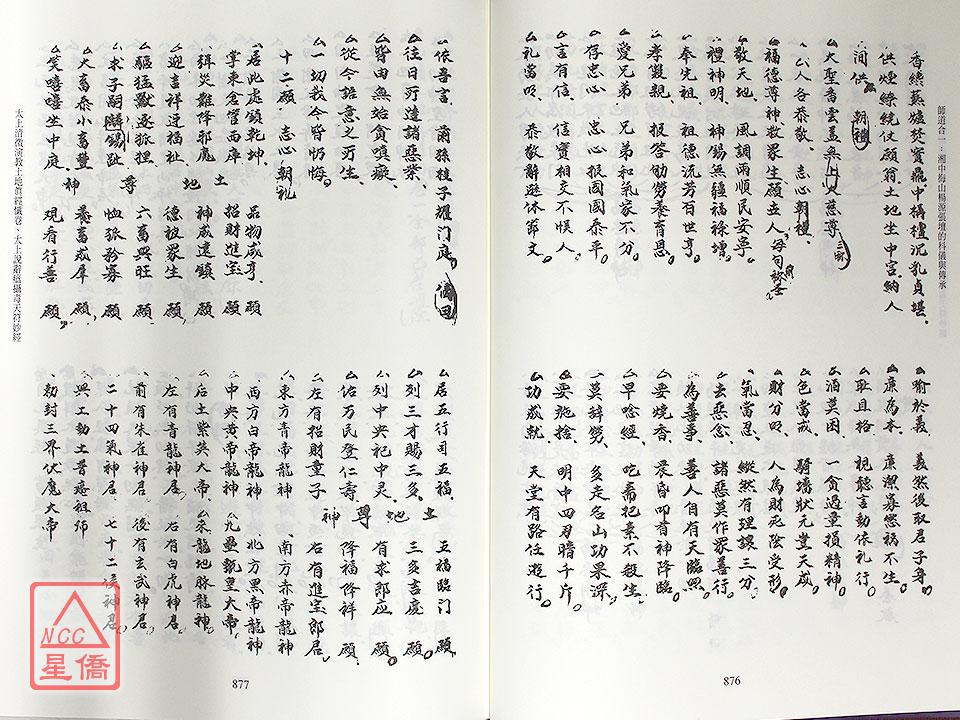 師道合一：湘中梅山楊源張壇的科儀與傳承
香繞蓺爐終寶鼎中搆檀沉乳貞堪
供煙繚繞伏願翁土地坐中宮納人
間供 朝禮
大聖香雲盖無上大慈尊
人各恭敬 志心朝禮
福德尊神教眾生願立人
敬天地 風調雨順民安寧
禮神明 神錫無疆福祿增
奉先祖 祖德沅芳百世亨
孝雙親 報答劬勞養育恩
愛兄弟 兄弟和氣家不分
存忠心 忠心報國國泰平
言有信 信實相交不悞人
礼當明 恭敬辭遜休節文
喻於義 義然後取君子身
廉為本 廉潔寡慾禍不生
耻且格 視聽言動依礼行
酒莫困 一貪過量損精神
色當戒 騎墻狀元畫天成
財分明 人為財死陰受形
氣當忍 縱然有理讓三分
去惡念 諸惡莫作眾善行
為善事 善人自有天臨照
要燒香 晨昏叩首神降臨
早唸經 吃齋把素不殺生
莫辞勞 多走名山功果深
要施捨 明中四刃暗千斤
功成就 天堂有路任遊行
876
依吾言 蘭孫桂子耀门庭
往日所造諸惡業
皆由無始貪嗔癡
從今語意之所生
一切我今皆忉悔
十二願 志心朝礼
居此處鎮乾坤 品物咸亨 願
掌東倉管西庫 招財進宝 願
弭災難降邪魔 神威遠鎮 願
迎吉祥迓福祉 德被眾生 願
驅猛獸逐狐狸 六畜興旺 願
求子嗣麟錫趾 恤孤矜寡 願
大畜泰小畜豐 養畜成羣 願
笑嘻嘻坐中庭 現看行善 願
土地尊神
居五行司五福 五福臨门 願
列三才賜三多 三多吉慶 願
列中央祀中灵 有求即应 願
佑万民登仁壽 降福降祥 願
土地尊神
左有招財童子 右有進宝郎君
東方青帝龍神 南方赤帝龍神
西方白帝龍神 北方黑帝龍神
中央黄帝龍神 九壘瓿皇大帝
后土紫英大帝 來龍地脉龍神
左有青龍神君 右有白虎神君
前有朱雀神君 後有玄武神君
二十四氣神君 七十二候神君
興工動土普庵祖师
勅封三界伏魔大帝
太上清微演教土地眞經懺卷、太上說辭瘟攝毒天符妙經
877
NCC
星僑